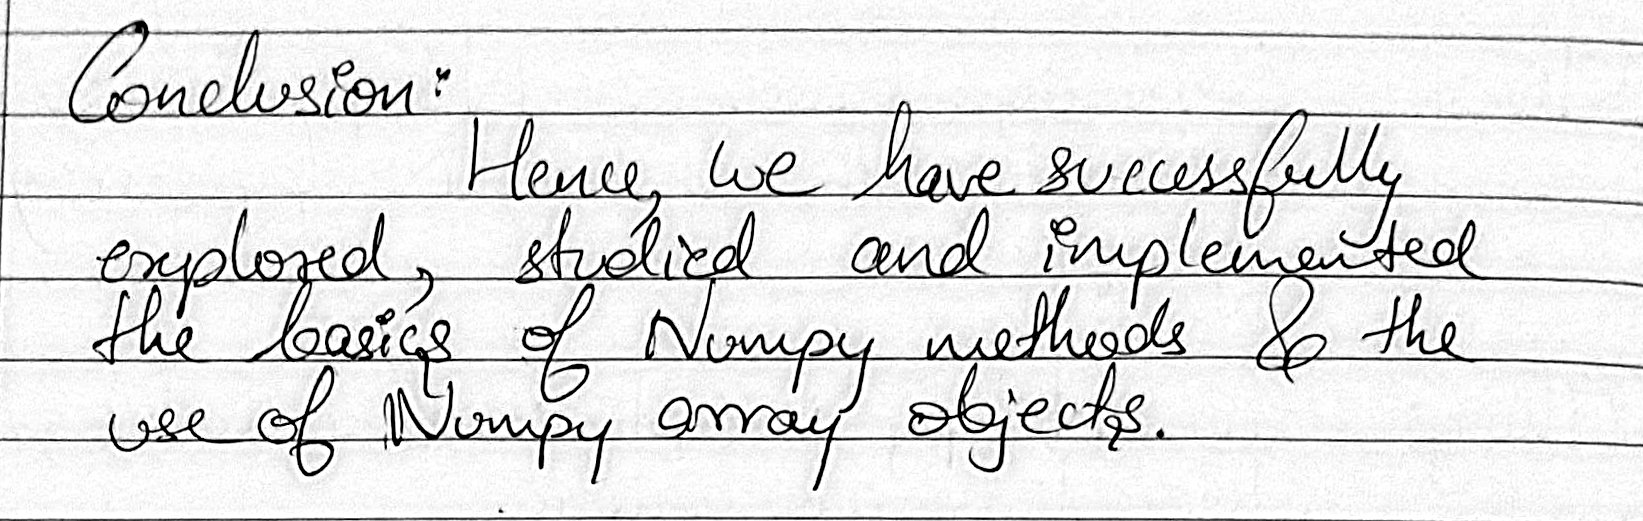 Conclusion:
Hence, we have successfully
explored, studied and implemented
the basics of Numpy methods & the
use of Numpy array objects.